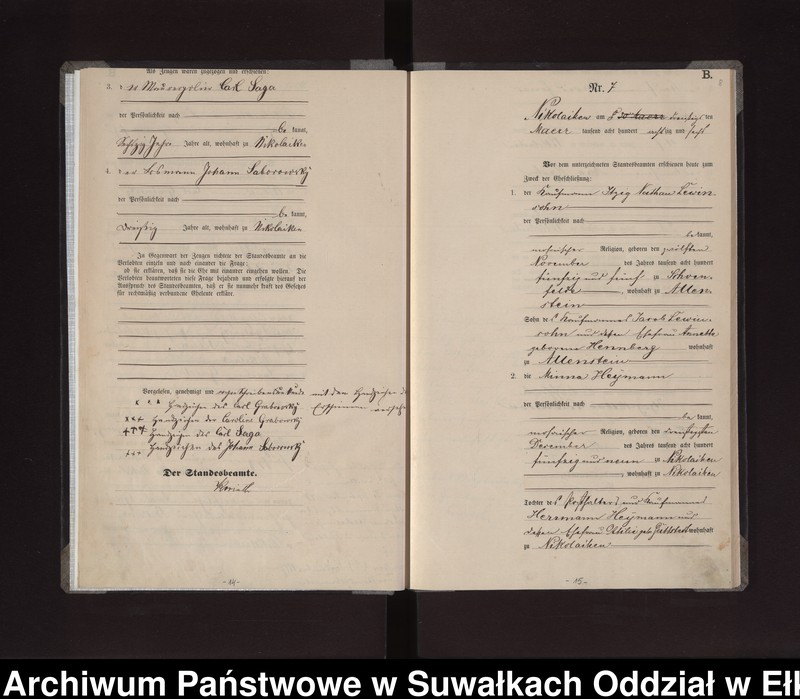 Als Zeugen waren zugezogen und erschienen:
3. der Maurerpolier Carl Saga
der Persönlichkeit nach
be kannt,
Sechzig Jahre Jahre alt, wohnhaft zu Nikolaiken
4. der Losmann Johann Saborowsky
der Persönlichkeit nach
be kannt,
Dreißig Jahre alt, wohnhaft zu Nikolaiken
In Gegenwart der Zeugen richtete der Standesbeamte an die
Verlobten einzeln und nach einander die Frage:
ob sie erklären, daß sie die Ehe mit einander eingehen wollen. Die
Verlobten beantworteten diese Frage bejahend und erfolgte hierauf der
Ausspruch des Standesbeamten, daß er sie nunmehr kraft des Gesetzes
für rechtmäßig verbundene Eheleute erkläre.
Vorgelesen, genehmigt und mit den Handzeichen der
+++ Handzeichen des Carl Grabowsky Erschienenen
+++ Handzeichen der Caroline Grabowsky
+++ Handzeichen des Carl Saga
+++ Handzeichen des Johann Saborowsky
Der Standesbeamte.
-14-
B.
8
Nr. 7
Nikolaiken am dreißigsten
Maerz tausend acht hundert achtzig und sechs
Vor dem unterzeichneten Standesbeamten erschienen heute zum
Zweck der Eheschließung:
1. der Kaufmann Itzig Nathan Lewin-
sohn
der Persönlichkeit nach
be kannt,
mosaischer Religion, geboren den zwölften
November des Jahres tausend acht hundert
fünfzig und fünf zu Schoen-
felde, wohnhaft zu Allen-
stein
Sohn des Kaufmanns Jacob Lewin-
sohn und dessen Ehefrau Annette
geborene Hennberg wohnhaft
zu Allenstein
2. die Minna Heymann
der Persönlichkeit nach
be kannt,
mosaischer Religion, geboren den dreißigsten
December des Jahres tausend acht hundert
fünfzig und neun zu Nikolaiken
, wohnhaft zu Nikolaiken
Tochter des Posthalters und Kaufmanns
Herrmann Heymann und
dessen Ehefrau Ottilie geb. wohnhaft
zu Nikolaiken
-15-
Archiwum Państwowe w Suwałkach Oddział w Eł